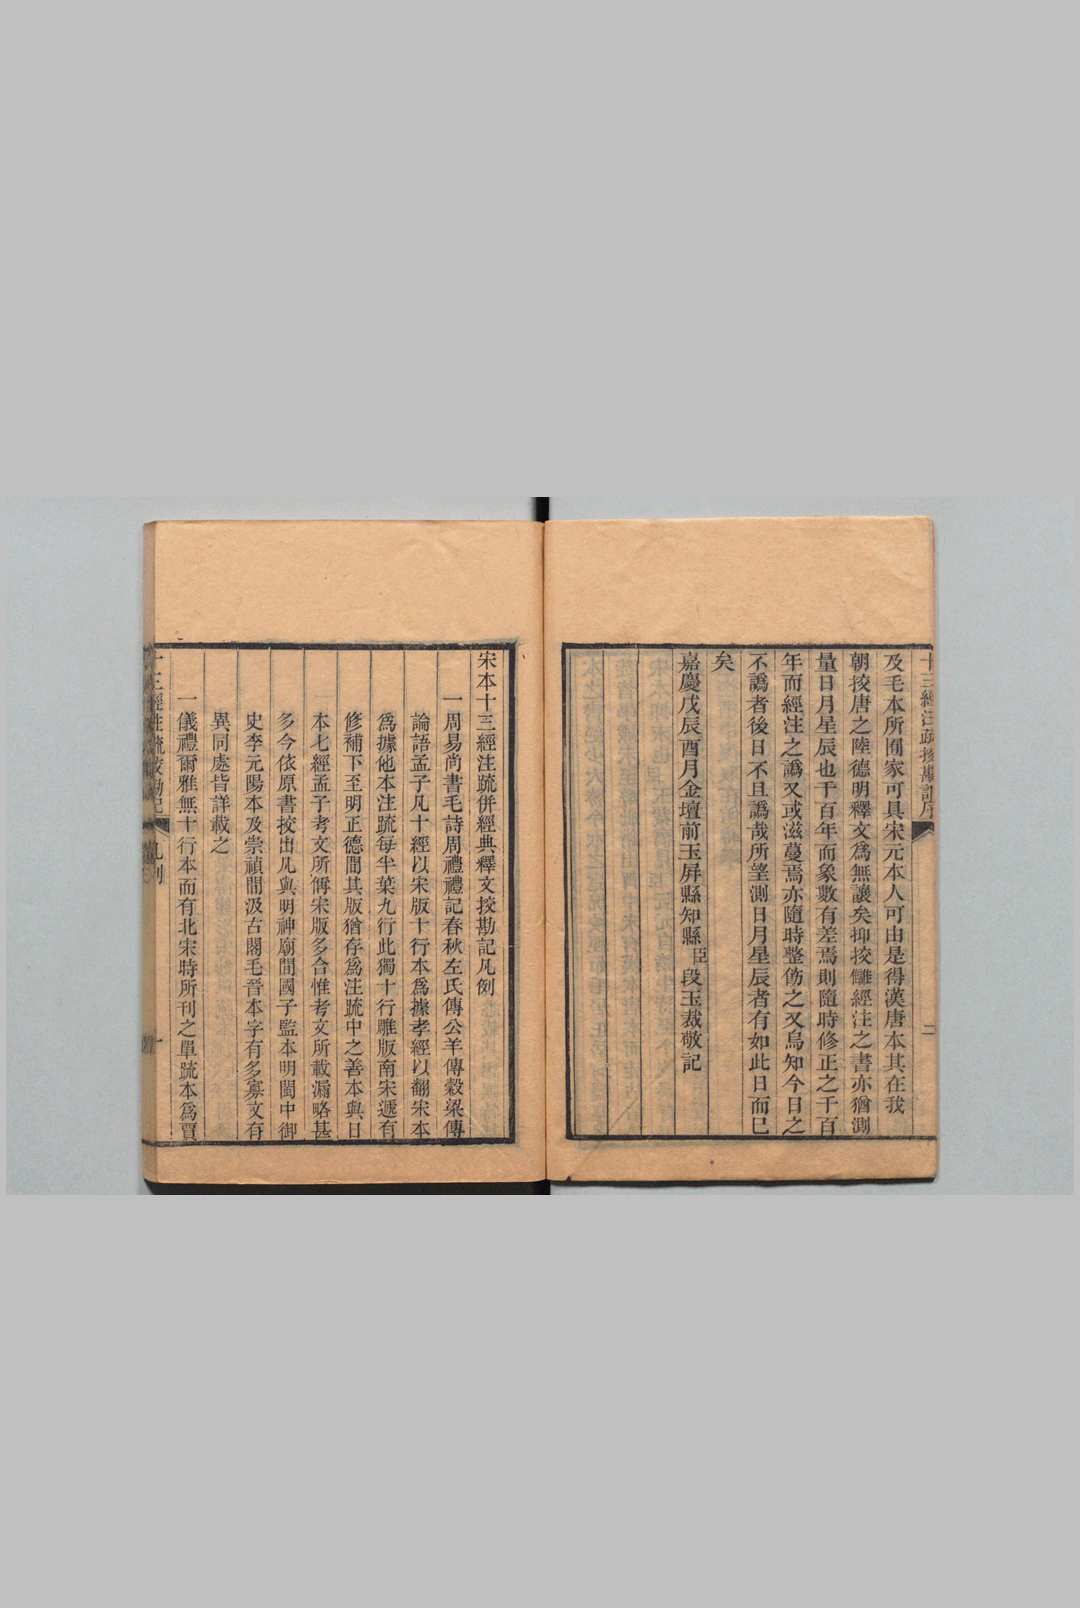 十三經注疏挍勘記序
二
及毛本所囿家可具宋元本人可由是得漢唐本其在我
朝挍唐之陸德明釋文為無讓矣抑挍讎經注之書亦猶測
量日月星辰也千百年而象數有差焉則隨時修正之千百
年而經注之譌又或滋蔓焉亦隨時整飭之又烏知今日之
不譌者後日不且譌哉所望測日月星辰者有如此日而已
矣
嘉慶戊辰酉月金壇前玉屏縣知縣臣段玉裁敬記
宋本十三經注疏併經典釋文挍勘記凡例
一周易尚書毛詩周禮禮記春秋左氏傳公羊傳穀梁傳
論語孟子凡十經以宋版十行本為據孝經以翻宋本
為據他本注疏每半葉九行此獨十行雕版南宋遞有
修補下至明正德間其版猶存為注疏中之善本與日
本七經孟子考文所偁宋版多合惟考文所載漏略甚
多今依原書挍出凡與明神廟間國子監本明閩中御
史李元陽本及崇禎間汲古閣毛晉本字有多寡文有
異同處皆詳載之
一儀禮爾雅無十行本而有北宋時所刊之單疏本為賈
十三經注疏挍勘記
凡例
一